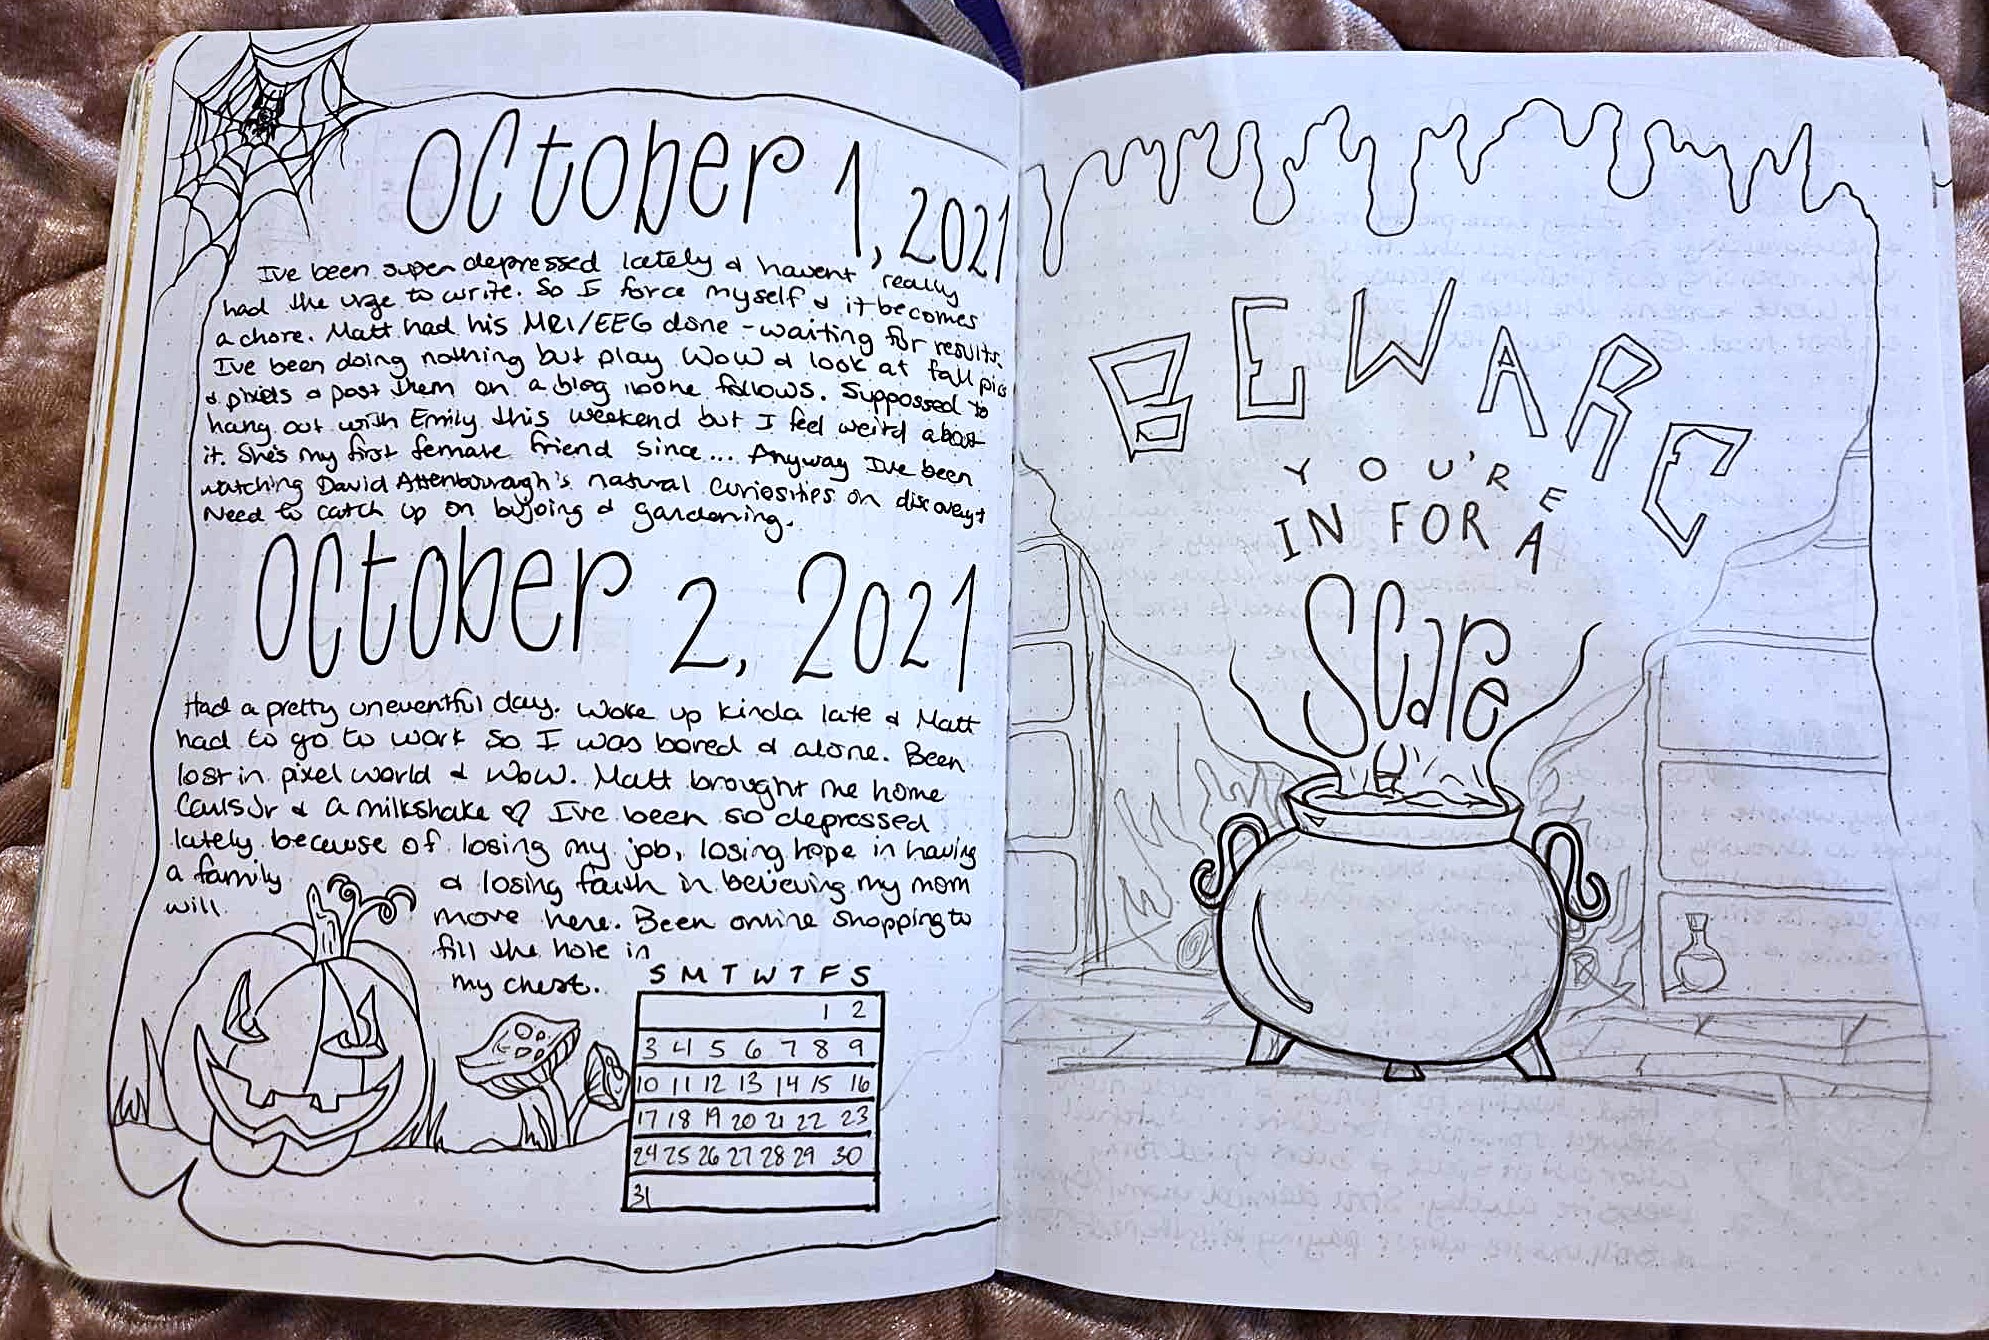 October 1, 2021
Ive been super depressed lately & havent really
had the urge to write. So I force myself & it becomes
a chore. Matt had his MRI/EEG done - waiting for results.
I've been doing nothing but play WoW & look at fall pics
& pixels & post them on a blog noone follows. Suppossed to
hang out with Emily this weekend but I feel weird about
it. She's my first female friend since... Anyway Ive been
watching David Attenbourough's natural curiosities on discovery+
Need to catch up on bujoing & gardening.
October 2, 2021
Had a pretty uneventful day. Woke up kinda late & Matt
had to go to work so I was bored & alone. Been
lost in pixel world & WoW. Matt brought me home
Carls Jr & a milkshake ♡ I've been so depressed
lately because of losing my job, losing hope in having
a family & losing faith in believing my mom
will move here. Been online shopping to
fill the hole in
my chest.
S M T W T F S
1 2
3 4 5 6 7 8 9
10 11 12 13 14 15 16
17 18 19 20 21 22 23
24 25 26 27 28 29 30
31
BEWARE
YOU'RE
IN FOR A
Scare